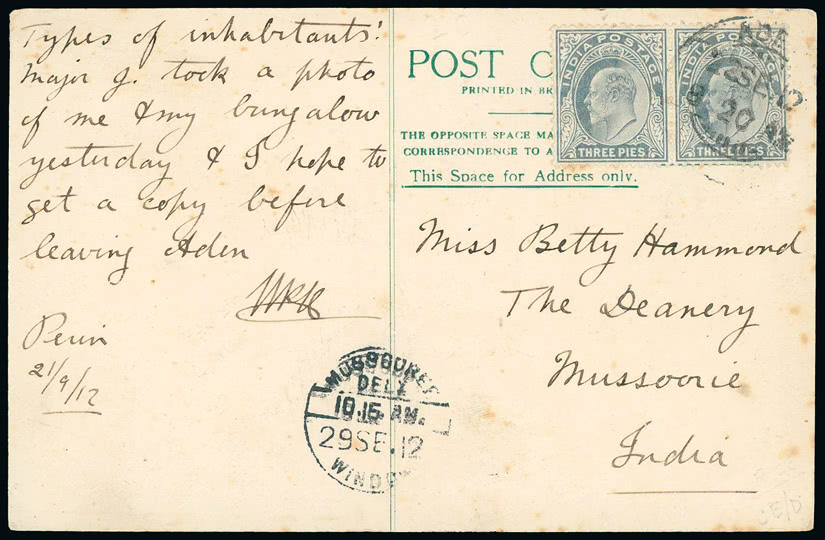 Types of inhabitants!
Major J. took a photo
of me & my bungalow
yesterday & I hope to
get a copy before
leaving Aden
Perim
21/9/12
POST C
PRINTED IN BR
THE OPPOSITE SPACE MA
CORRESPONDENCE TO A
This Space for Address only.
INDIA POSTAGE
THREE PIES
INDIA POSTAGE
THREE PIES
ADE
SE.12
Miss Betty Hammond
The Deanery
Mussoorie
India
MUSSOOREE
DELY
10.15 AM.
29SE.12
WIND